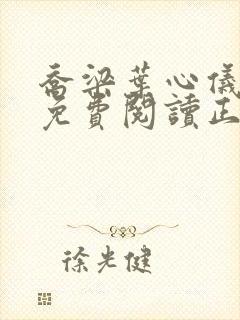 喬梁葉心儀
免費閱讀正
徐光健